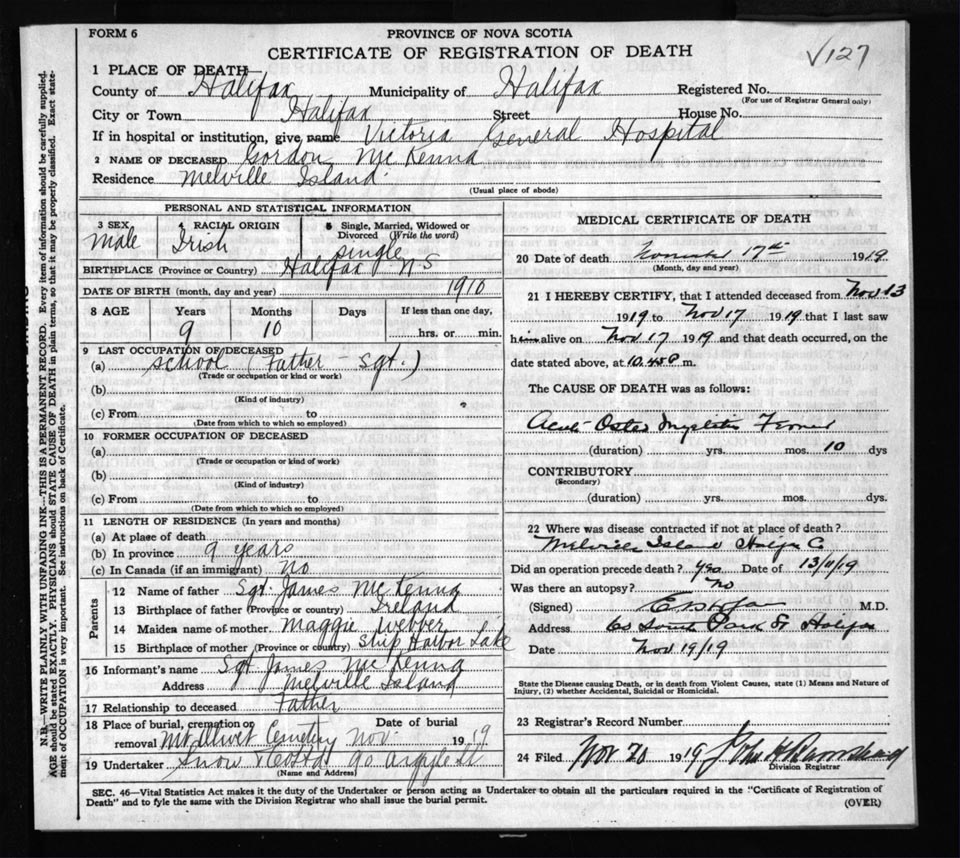 FORM 6
PROVINCE OF NOVA SCOTIA
CERTIFICATE OF REGISTRATION OF DEATH
√127
1 PLACE OF DEATH
County of Halifax Municipality of Halifax Registered No.
(For use of Registrar General only)
City or Town Halifax Street House No.
If in hospital or institution, give name Victoria General Hospital
2 NAME OF DECEASED Gordon McKenna
Residence Melville Island
(Usual place of abode)
PERSONAL AND STATISTICAL INFORMATION
3 SEX 4 RACIAL ORIGIN 5 Single, Married, Widowed or Divorced (Write the word)
Male Irish Single
BIRTHPLACE (Province or Country) Halifax N S
DATE OF BIRTH (month, day and year) 1910
8 AGE Years Months Days If less than one day,
9 10 hrs. or min.
9 LAST OCCUPATION OF DECEASED
(a) School (Father - Sgt.)
(Trade or occupation or kind of work)
(b)
(Kind of industry)
(c) From to
(Date from which to which so employed)
10 FORMER OCCUPATION OF DECEASED
(a)
(Trade or occupation or kind of work)
(b)
(Kind of industry)
(c) From to
(Date from which to which so employed)
11 LENGTH OF RESIDENCE (In years and months)
(a) At place of death
(b) In province 9 years
(c) In Canada (if an immigrant) No
Parents
12 Name of father Sgt. James McKenna
13 Birthplace of father (Province or country) Ireland
14 Maiden name of mother Maggie Webber
15 Birthplace of mother (Province or country) Ship Harbor Lake
16 Informant's name Sgt James McKenna
Address Melville Island
17 Relationship to deceased Father
18 Place of burial, cremation or removal Mt Olivet Cemetery Date of burial Nov. 1919
19 Undertaker Snow 90 Argyle St
(Name and Address)
MEDICAL CERTIFICATE OF DEATH
20 Date of death November 17th 1919
(Month, day and year)
21 I HEREBY CERTIFY, that I attended deceased from Nov 13
1919 to Nov 17 1919 that I last saw
him alive on Nov 17 1919 and that death occurred, on the
date stated above, at 10.40 P m.
The CAUSE OF DEATH was as follows:
Acute Osteo Myelitis Femur
(duration) yrs. mos. 10 dys
CONTRIBUTORY
(Secondary)
(duration) yrs. mos. dys.
22 Where was disease contracted if not at place of death?
Melville Island Halifax Co
Did an operation precede death? yes Date of 13/11/19
Was there an autopsy? no
(Signed) M.D.
Address 65 South Park St Halifax
Date Nov 19/19
State the Disease causing Death, or in death from Violent Causes, state (1) Means and Nature of
Injury, (2) whether Accidental, Suicidal or Homicidal.
23 Registrar's Record Number
24 Filed Nov 20 1919 John H
Division Registrar
SEC. 46—Vital Statistics Act makes it the duty of the Undertaker or person acting as Undertaker to obtain all the particulars required in the "Certificate of Registration of
Death" and to fyle the same with the Division Registrar who shall issue the burial permit.
(OVER)
N.B.—WRITE PLAINLY WITH UNFADING INK—THIS IS A PERMANENT RECORD. Every item of information should be carefully supplied.
AGE should be stated EXACTLY. PHYSICIANS should STATE CAUSE OF DEATH in plain terms, so that it may be properly classified. Exact state-
ment of OCCUPATION is very important. See instructions on back of Certificate.